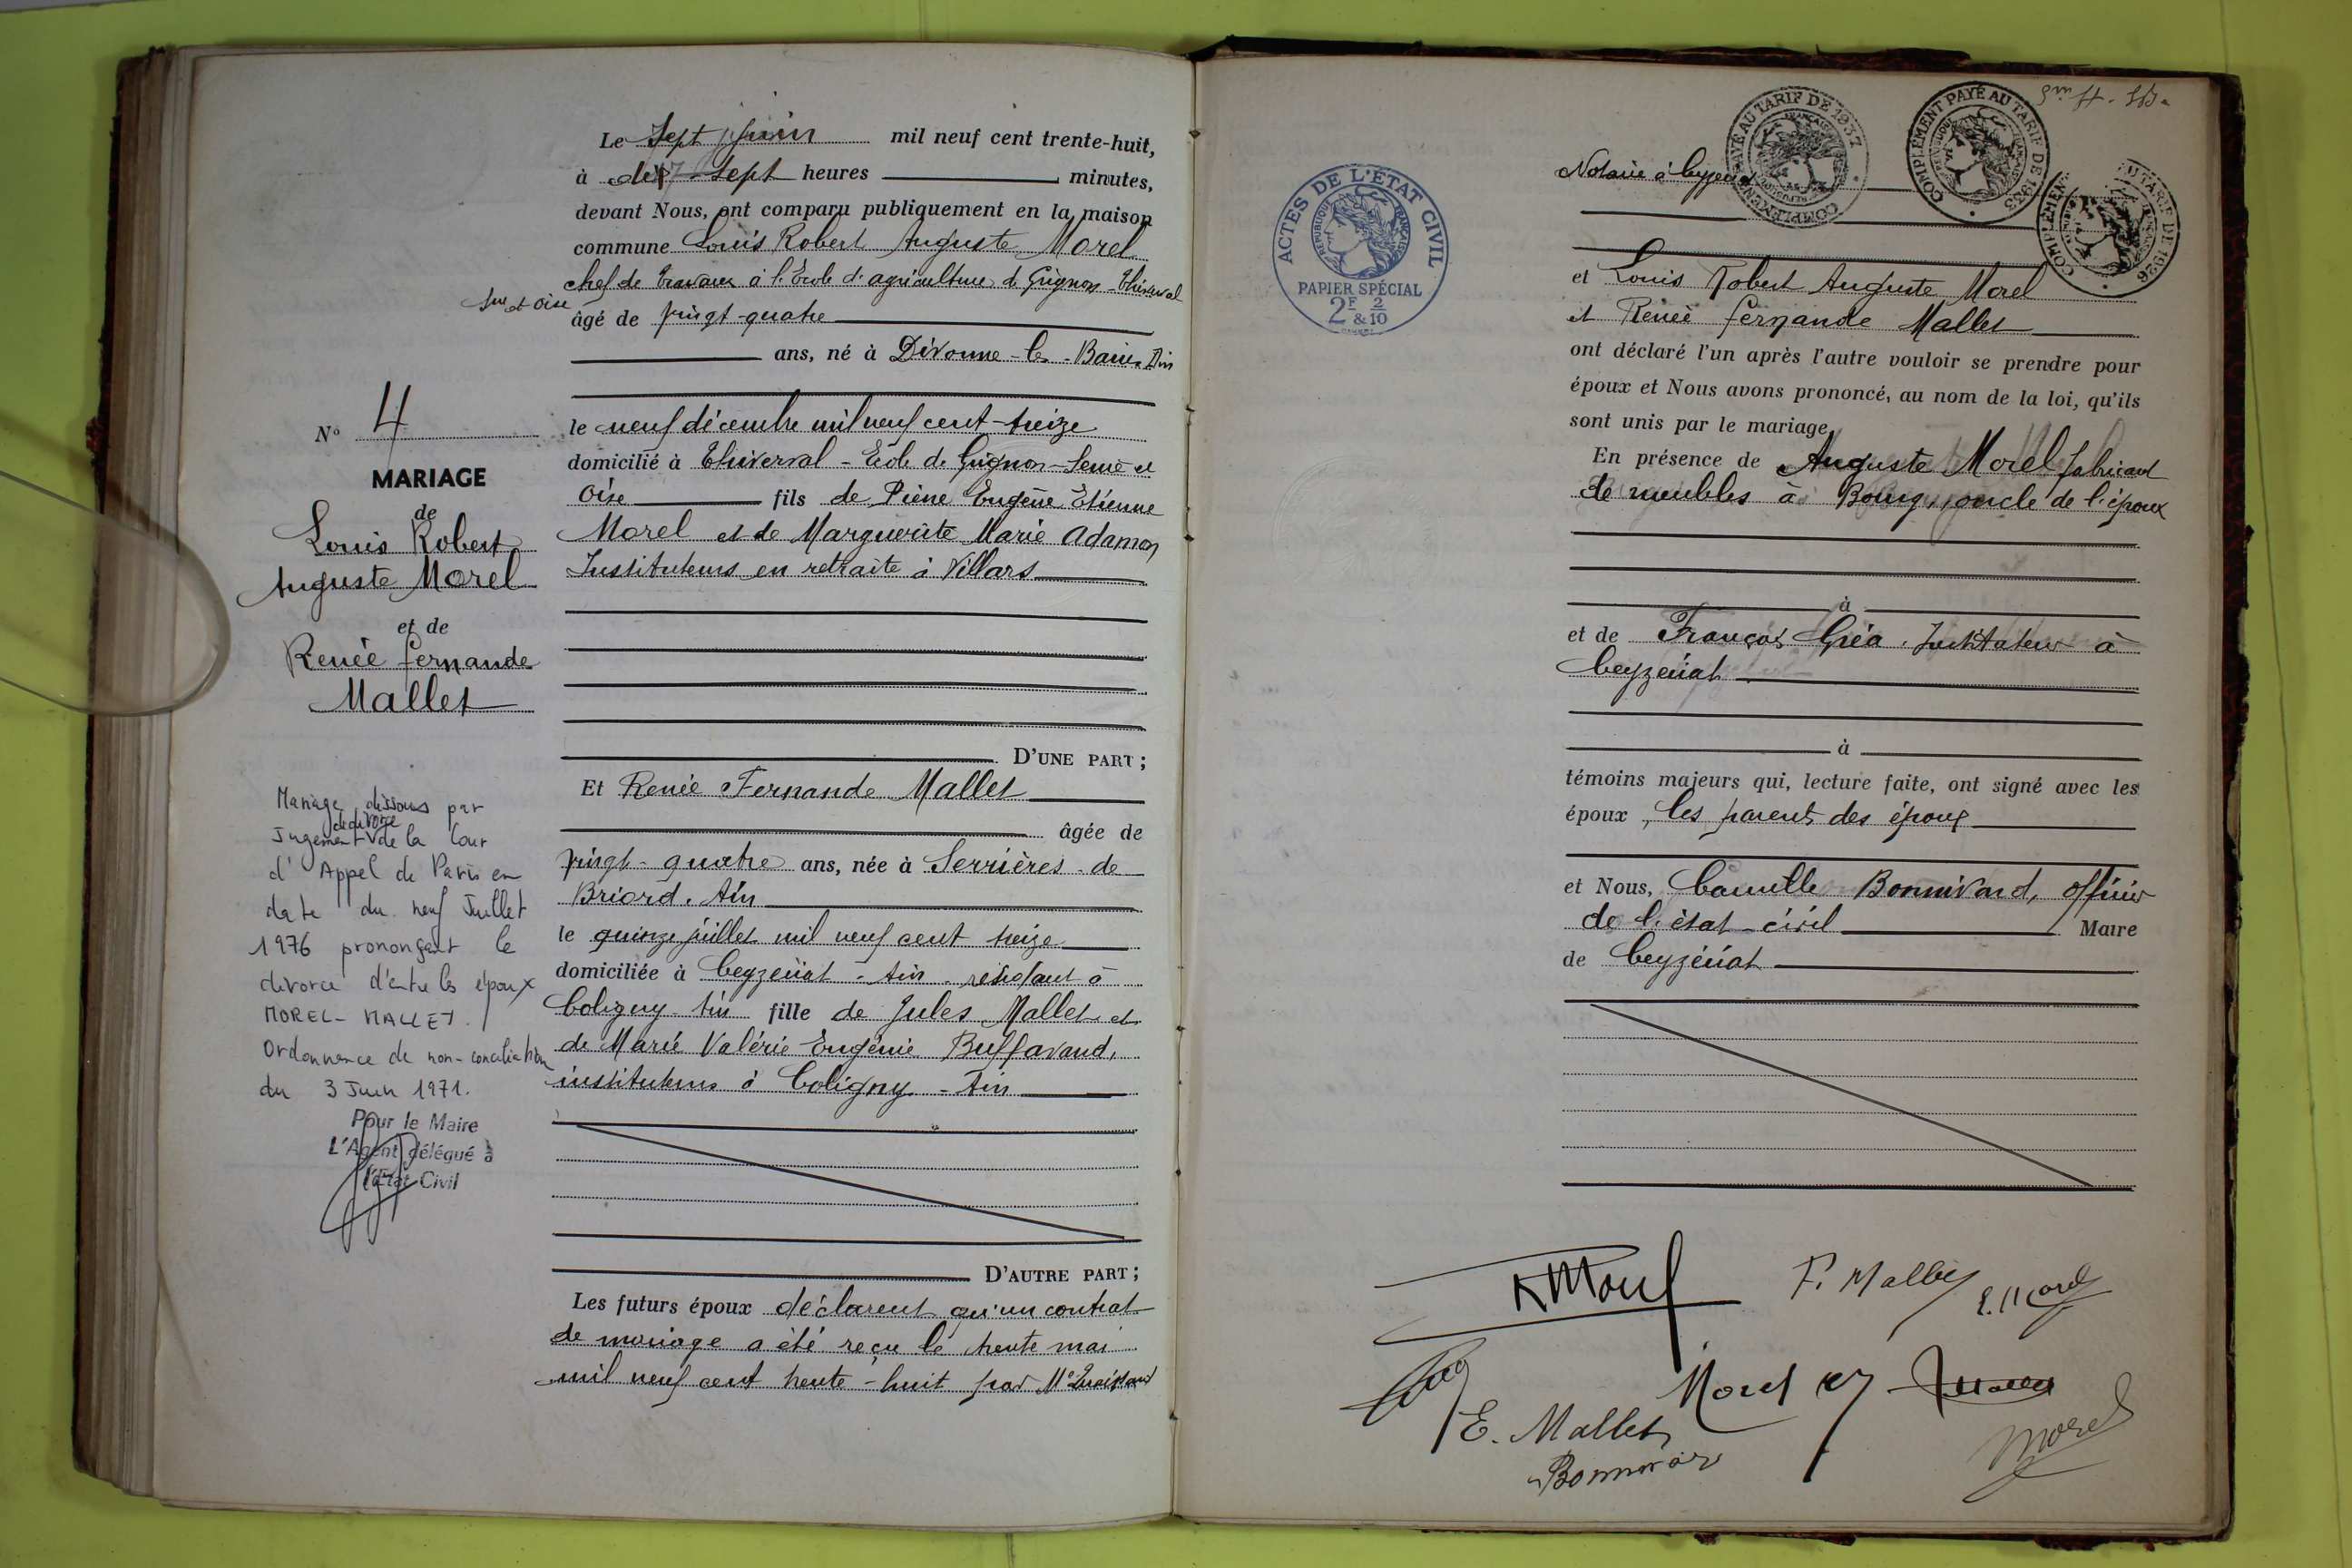 N° 4
MARIAGE
de
Louis Robert
Auguste Morel
et de
Renée Fernande
Mallet
Mariage dissous par
de divorce
Jugement de la Cour
d'Appel de Paris en
date du neuf Juillet
1976 prononçant le
divorce d'entre les époux
MOREL-MALLET.
Ordonnance de non-conciliation
du 3 Juin 1971.
Pour le Maire
L'Agent délégué à
l'Etat Civil
Le sept juin mil neuf cent trente-huit,
à dix-sept heures minutes,
devant Nous, ont comparu publiquement en la maison
commune Louis Robert Auguste Morel
chef de travaux à l'École d'agriculture de Grignon - Thiverval
Seine et Oise
âgé de vingt-quatre
ans, né à Divonne-les-Bains. Ain
le neuf décembre mil neuf cent-treize
domicilié à Thiverval - École de Grignon - Seine et
Oise fils de Pierre Eugène Étienne
Morel et de Marguerite Marie Adamon
Instituteurs en retraite à Villars
D'UNE PART ;
Et Renée Fernande Mallet
âgée de
vingt-quatre ans, née à Serrières-de
Briord. Ain
le quinze juillet mil neuf cent treize
domiciliée à Ceyzériat - Ain. résidant à
Coligny Ain fille de Jules Mallet et
de Marie Valérie Eugénie Buffavand,
instituteurs à Coligny - Ain
D'AUTRE PART ;
Les futurs époux déclarent qu'un contrat
de mariage a été reçu le trente mai
mil neuf cent trente-huit par Me
ACTES DE L'ÉTAT CIVIL
RÉPUBLIQUE FRANÇAISE
PAPIER SPÉCIAL
2F & 2/10
COMPLÉMENT PAYÉ AU TARIF DE 1937
COMPLÉMENT PAYÉ AU TARIF DE 1933
COMPLÉMEN UTARIF DE 1926
Notaire à
et Louis Robert Auguste Morel
et Renée Fernande Mallet
ont déclaré l'un après l'autre vouloir se prendre pour
époux et Nous avons prononcé, au nom de la loi, qu'ils
sont unis par le mariage
En présence de Auguste Morel fabricant
de meubles à Bourg, oncle de l'époux
à
et de François Gréa. Instituteur à
Ceyzériat
à
témoins majeurs qui, lecture faite, ont signé avec les
époux, les parents des époux
et Nous, Camille Bonnivard, officier
de l'état-civil Maire
de Ceyzériat
R Morel
F. Mallet
E. Morel
Morel
E. Mallet
Morel